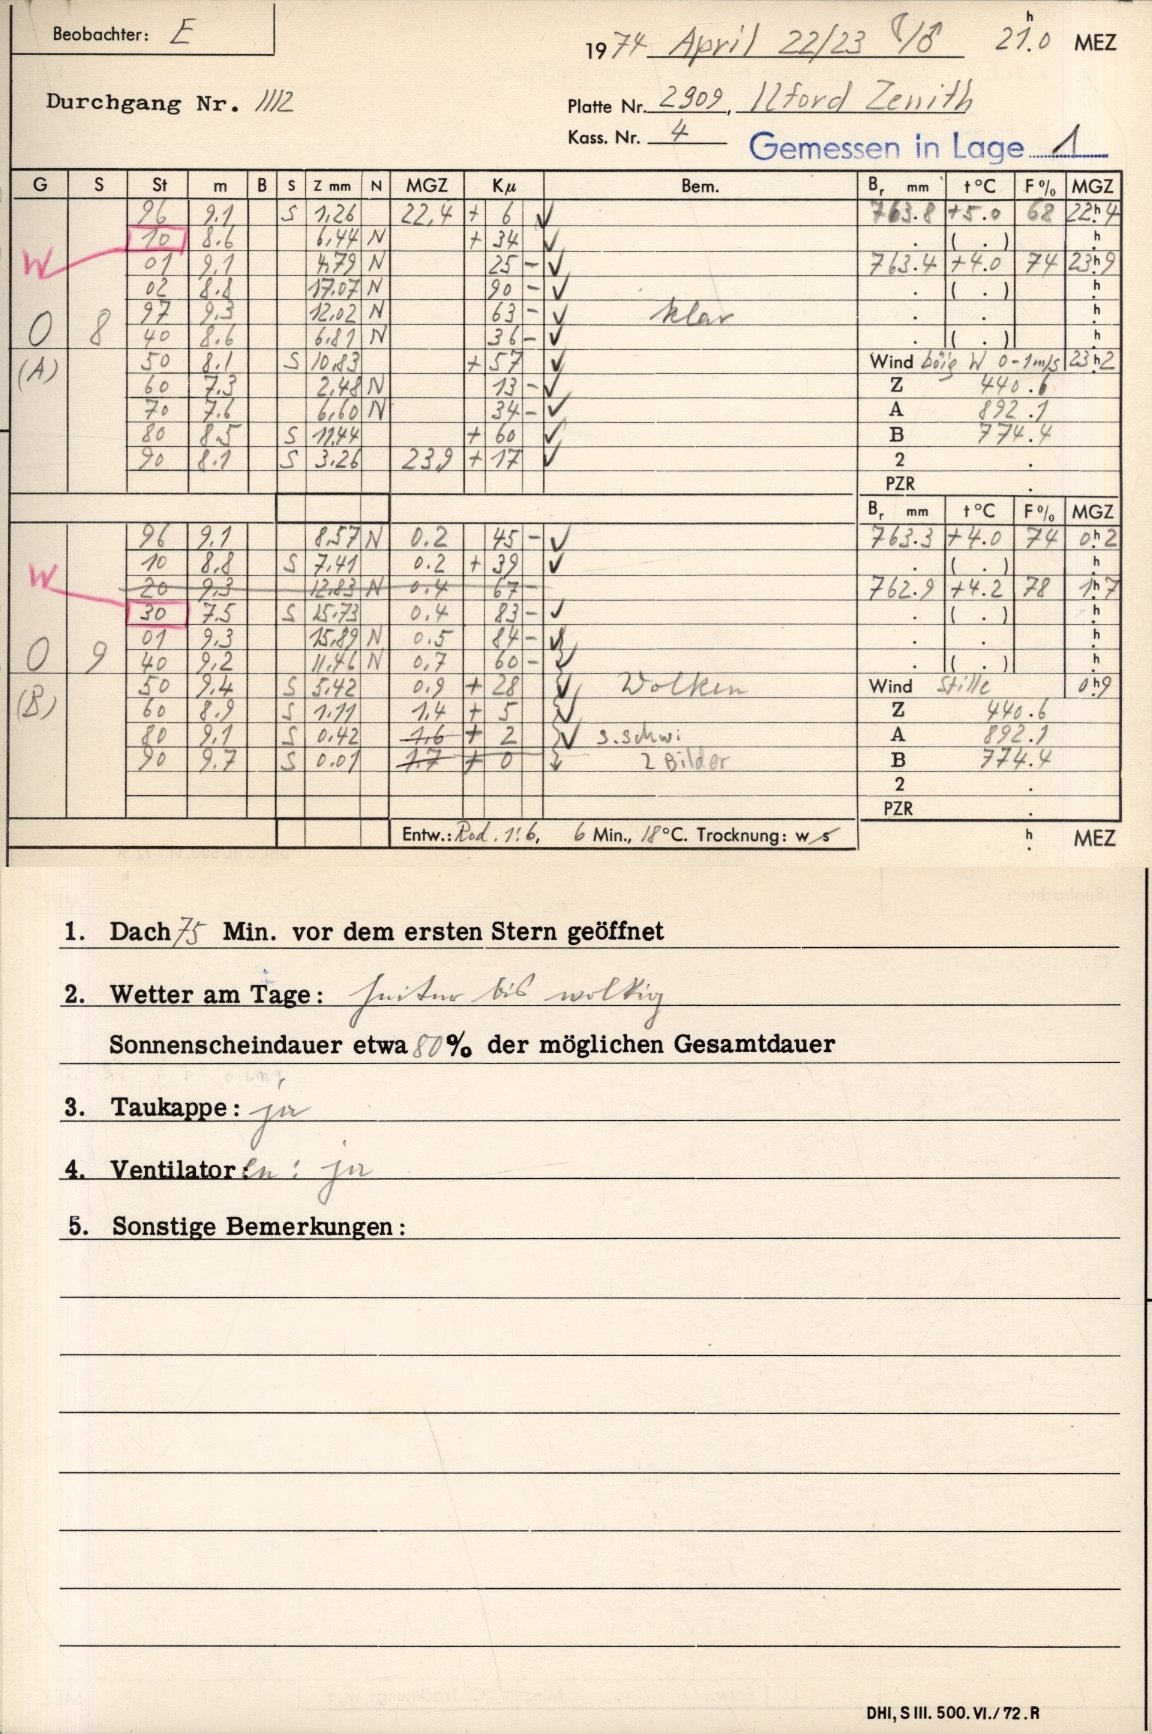 Beobachter: E
1974 April 22/23 ☾/♂ 21.0 h MEZ
Durchgang Nr. 1112
Platte Nr. 2909, Ilford Zenith
Kass. Nr. 4 Gemessen in Lage 1
G S St m B S Z mm N MGZ Kμ Bem. Br mm t °C F % MGZ
96 9.1 S 1,26 22,4 + 6 ✓ 763.8 +5.0 68 22h4
W 10 8.6 6,44 N + 34 ✓ . ( . ) h
01 9,1 4,79 N 25 – ✓ 763.4 +4.0 74 23h9
02 8.8 17,07 N 90 – ✓ . ( . ) h
0 8 97 9,3 12,02 N 63 – ✓ klar . . h
40 8.6 6,81 N 36 – ✓ . ( . ) h
(A) 50 8.1 S 10,83 + 57 ✓ Wind böig W 0-1m/s 23h2
60 7.3 2,48 N 13 – ✓ Z 440.6
70 7.6 6,60 N 34 – ✓ A 892.1
80 8.5 S 11,44 + 60 ✓ B 774.4
90 8.1 S 3,26 23,9 + 17 ✓ 2 .
PZR .
Br mm t °C F % MGZ
96 9.1 8,57 N 0.2 45 – ✓ 763.3 +4.0 74 0h2
10 8,8 S 7,41 0.2 + 39 ✓ . ( . ) h
W 20 9,3 12,83 N 0.4 67 – 762.9 +4.2 78 1h7
30 7.5 S 15,73 0.4 83 – ✓ . ( . ) h
01 9,3 15,89 N 0.5 84 – ✓ . . h
0 9 40 9,2 11,46 N 0,7 60 – ✓ . ( . ) h
(B) 50 9.4 S 5,42 0.9 + 28 ✓ Wolken Wind Stille 0h9
60 8.9 S 1,11 1,4 + 5 ✓ Z 440.6
80 9.1 S 0,42 1,6 + 2 ✓ s.schwi A 892.1
90 9.7 S 0.01 1.7 + 0 2 Bilder B 774.4
2 .
PZR .
Entw.: Rod. 1:6, 6 Min., 18°C. Trocknung: w s h MEZ
1. Dach 75 Min. vor dem ersten Stern geöffnet
2. Wetter am Tage: heiter bis wolkig
Sonnenscheindauer etwa 80% der möglichen Gesamtdauer
3. Taukappe: ja
4. Ventilator:en: ja
5. Sonstige Bemerkungen:
DHI, S III. 500. VI./72. R